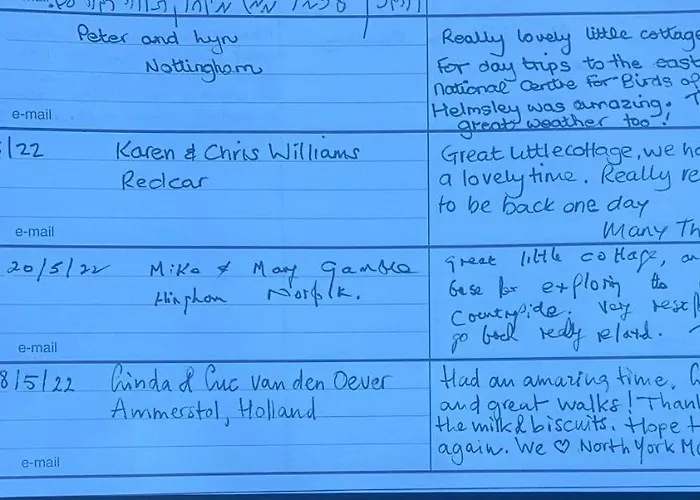 Peter and Lyn
Nottingham
Really lovely little cottage
For day trips to the east
national Centre For Birds of
Helmsley was amazing. T
great weather too!
e-mail
/22
Karen & Chris Williams
Redcar
Great little cottage, we ha
a lovely time. Really re
to be back one day
Many Th
e-mail
20/5/22
Mike & Mary Gamble
Hingham Norfolk.
great little cottage, an
base for exploring the
Countryside. Very
go back really relaxed.
e-mail
8/5/22
Linda & Luc van den Oever
Ammerstol, Holland
Had an amazing time.
and great walks! Thank
the milk & biscuits. Hope t
again. We ♡ North York Mo
e-mail